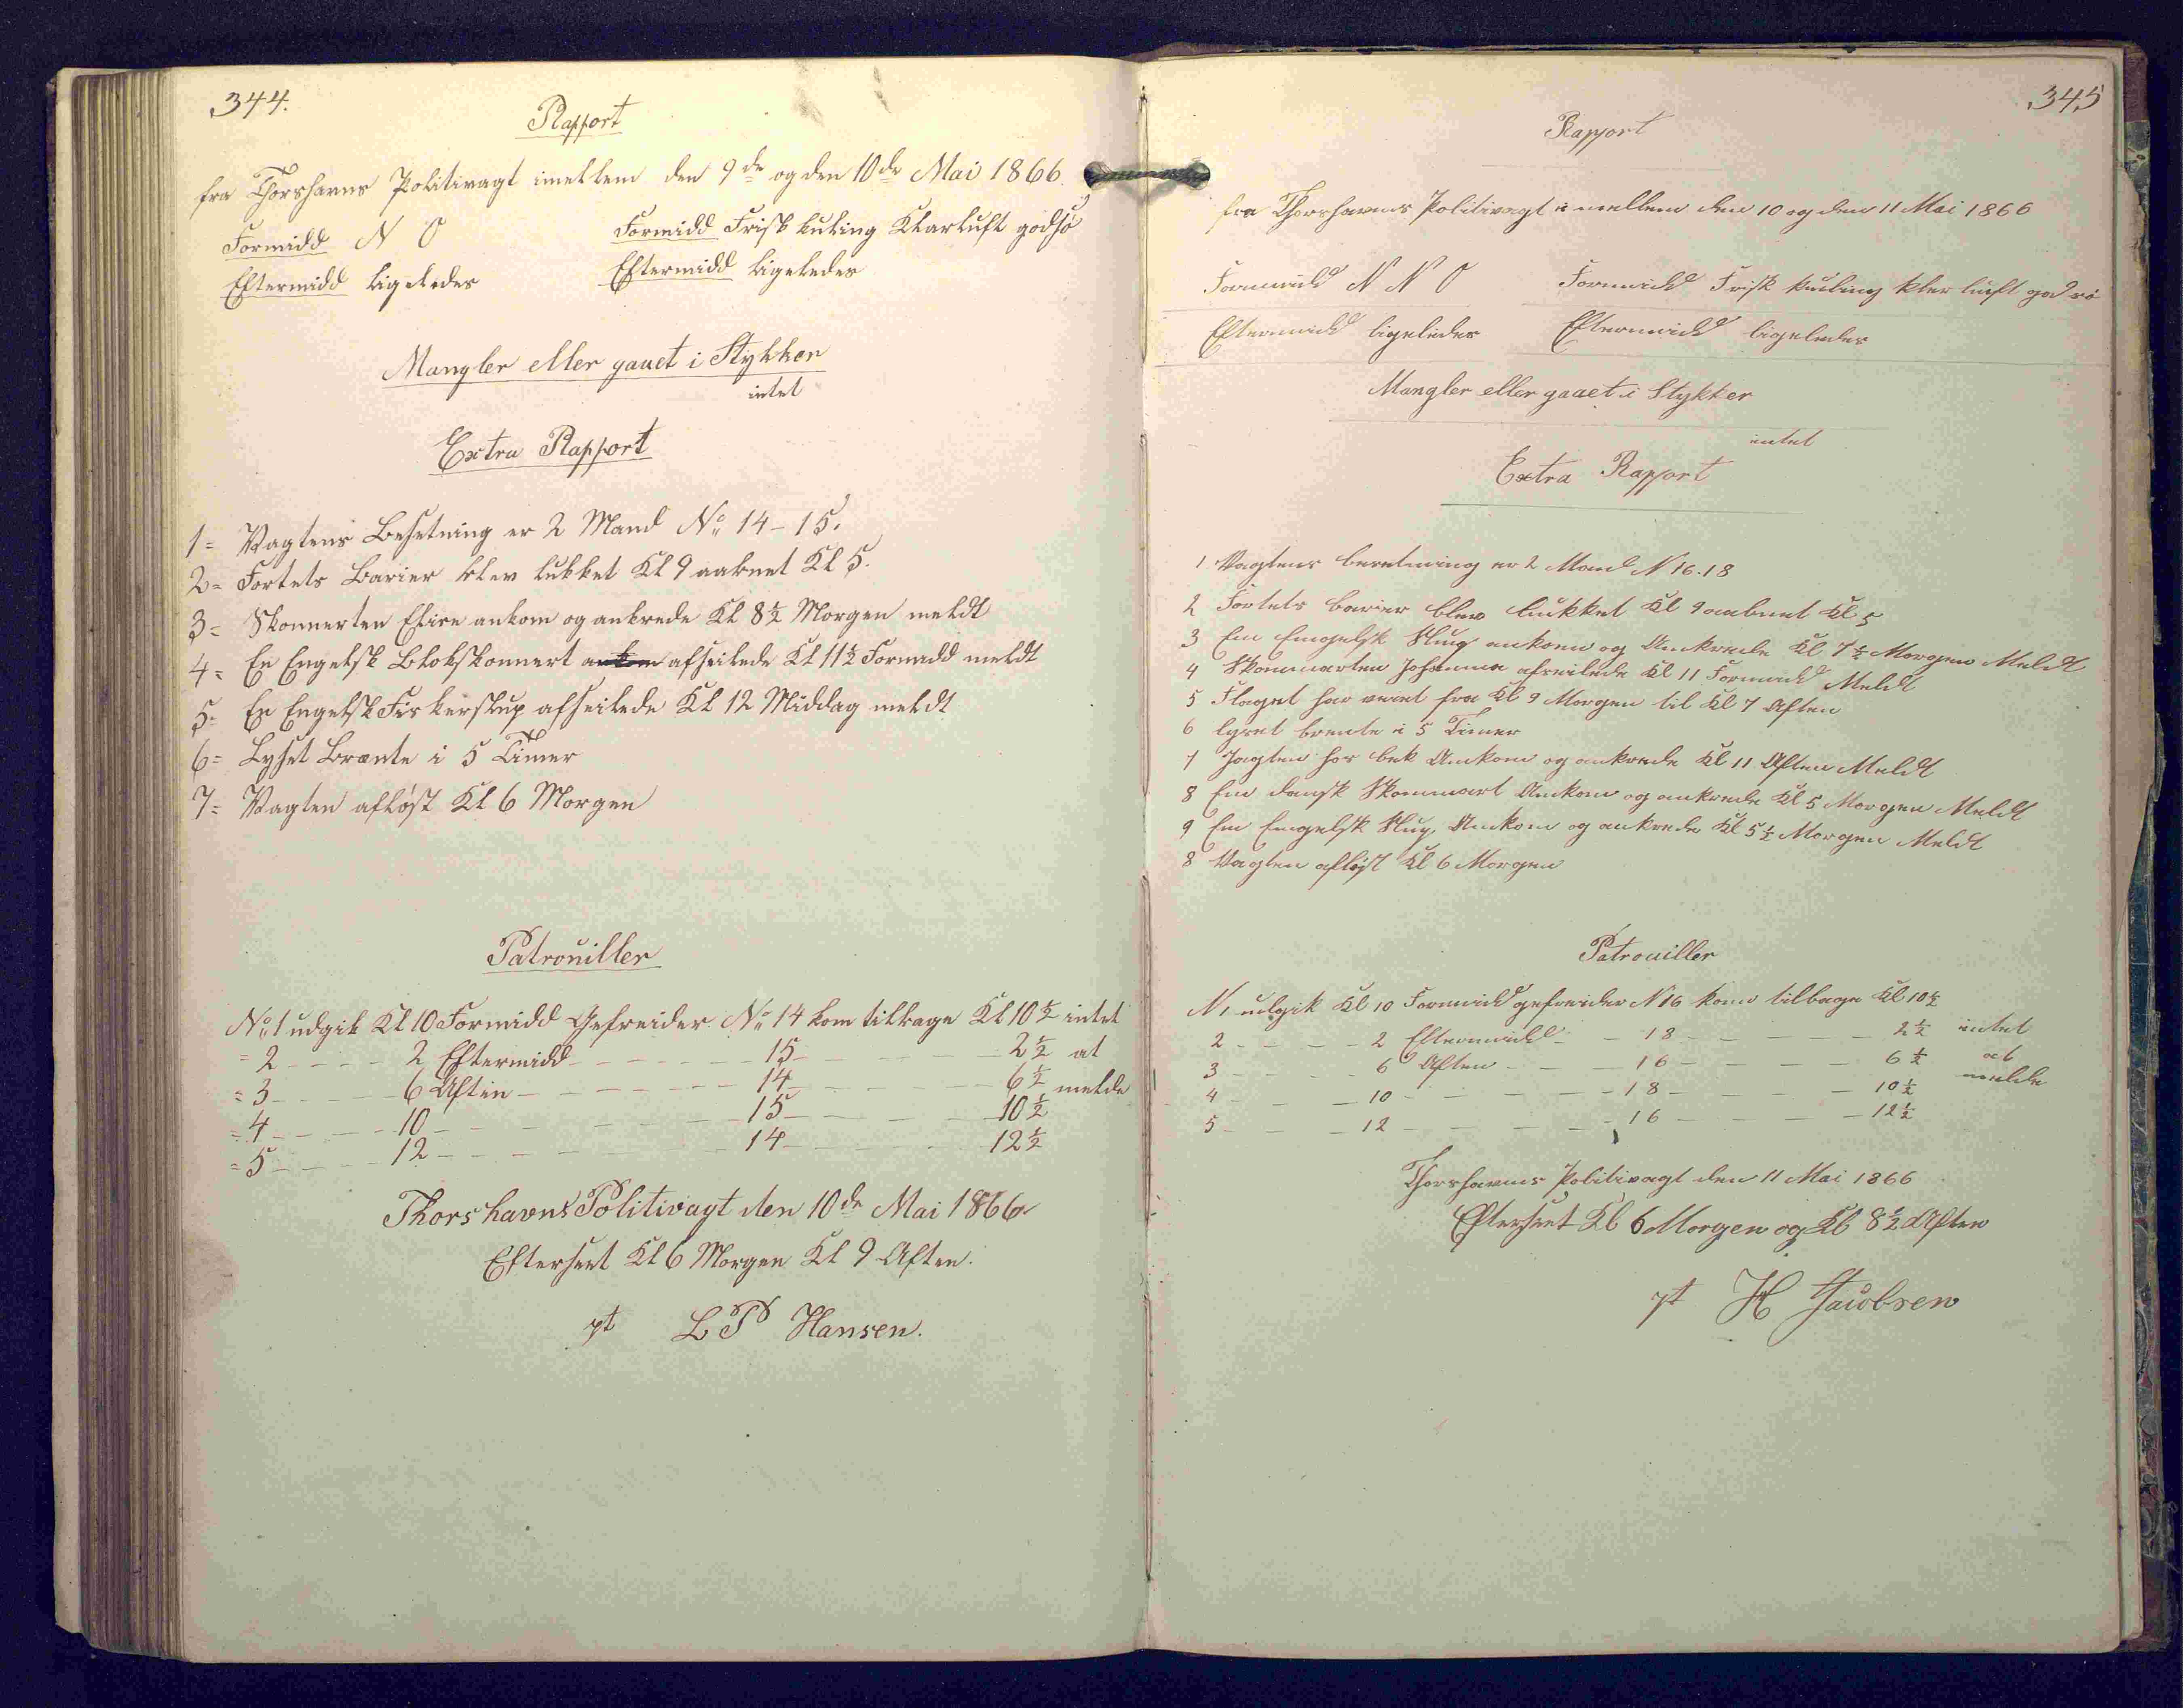 344.
Rapport
fra Thorshavns Politivagt imellem den 9de og den 10de Mai 1866.
Formidd N O Formidd Frisk kuling Klarluft godsø
Eftermidd ligeledes Eftermidd ligeledes
Mangler eller gauet i Stykker
intet
Extra Rapport
1= Vagtens Besetning er 2 Mand No 14-15.
2= Fortets Barier blev lukket Kl 9 aabnet Kl 5.
3= Skonnerten ankom og ankrede Kl 8½ Morgen meldt
4= En Engelsk Blokskonnert afseilede Kl 11½ Formdd meldt
5= En Engelsk Fiskerslup afseilede Kl 12 Middag meldt
6= Lyset Brænte i 5 Timer
7= Vagten afløst Kl 6 Morgen
Patrouiller
No 1 udgik Kl 10 Formidd Gefreider No 14 kom tilbage Kl 10½ intet
= 2 - - - - 2 Eftermidd - - - - - 15 - - - - 2½ at
= 3 - - - - 6 Aften - - - - - 14 - - - - 6½ melde
= 4 - - - - 10 - - - - - 15 - - - - 10½
= 5 - - - - 12 - - - - - 14 - - - - 12½
Thorshavns Politivagt den 10de Mai 1866
Efterseet Kl 6 Morgen Kl 9 Aften.
pt L P Hansen.
345
Rapport
fra Thorshavns Politivagt i mellem den 10 og den 11 Mai 1866
Formidd N N O Formidd Frisk kuling klar luft god sö
Eftermidd ligeledes Eftermidd ligeledes
Mangler eller gaaet i Stykker
intet
Extra Rapport
1 Vagtens besetning er 2 Mand N 16.18
2 Fortets barier blev lukket Kl 9 aabnet Kl 5
3 En Engelsk Slup ankom og Ankrede Kl 7½ Morgen Meldt
4 Skonnarten Johanna afseilede Kl 11 Formidd Meldt
5 Flaget har veiet fra Kl 9 Morgen til Kl 7 Aften
6 lyset brente i 5 Timer
7 Jagten Ankom og ankrede Kl 11 Aften Meldt
8 En dansk Skonnart Ankom og ankrede Kl 5 Morgen Meldt
9 En Engelsk Slup Ankom og ankrede Kl 5½ Morgen Meldt
8 Vagten afløst Kl 6 Morgen
Patrouiller
N 1 udgik Kl 10 Formidd gefreider N 16 kom tilbage Kl 10½
2 - - - - 2 Eftermidd - - 18 - - - - 2½ intet
3 - - - - 6 Aften - - - 16 - - - - 6½ at
4 - - - - 10 - - - - - 18 - - - - 10½ melde
5 - - - 12 - - - - - 16 - - - - 12½
Thorshavns Politivagt den 11 Mai 1866
Efterseet Kl 6 Morgen og Kl 8½ Aften
pt H Jacobsen